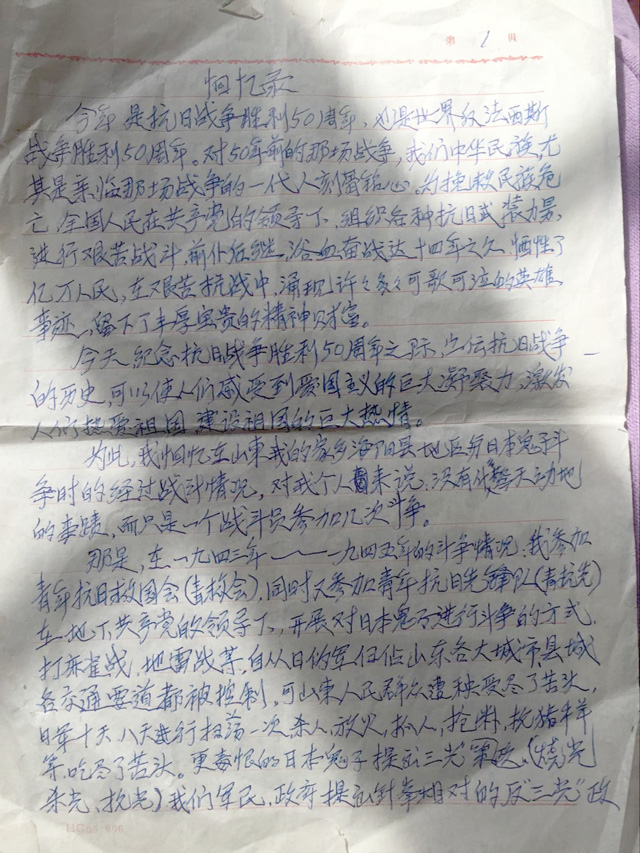 第 1 页
回忆录
今年是抗日战争胜利50周年，也是世界反法西斯
战争胜利50周年。对50年前的那场战争，我们中华民族，尤
其是亲临那场战争的一代人刻骨铭心。为挽救民族危
亡，全国人民在共产党的领导下，组织各种抗日武装力量，
进行艰苦战斗，前仆后继，浴血奋战达十四年之久，牺牲了
亿万人民，在艰苦抗战中，涌现许许多多可歌可泣的英雄
事迹，留下了丰厚宝贵的精神财富。
今天纪念抗日战争胜利50周年之际，宣传抗日战争
的历史，可以使人们感受到爱国主义的巨大凝聚力，激发
人们热爱祖国建设祖国的巨大热情。
为此，我回忆在山东我的家乡海阳县地区与日本鬼子斗
争时的经过战斗情况，对我个人来说，没有什么惊天动地
的事蹟，而只是一个战斗员参加几次斗争。
那是，在一九四三年———一九四五年的斗争情况，我参加
青年抗日救国会（青救会），同时又参加青年抗日先锋队（青抗先）
在地下共产党的领导下，开展对日本鬼子进行斗争的方式，
打麻雀战，地雷战等，自从日伪军侵占山东各大城市，县城
各交通要道都被控制，可山东人民群众遭秧受尽了苦头，
日军十天八天进行扫荡一次，杀人，放火，抓人，抢粮，抗猪羊
等，吃尽了苦头。更毒恨的日本鬼子提出三光"策政，（烧光
杀光，抗光）我们军民，政府提出针峰相对的反"三光"政
HG65-806